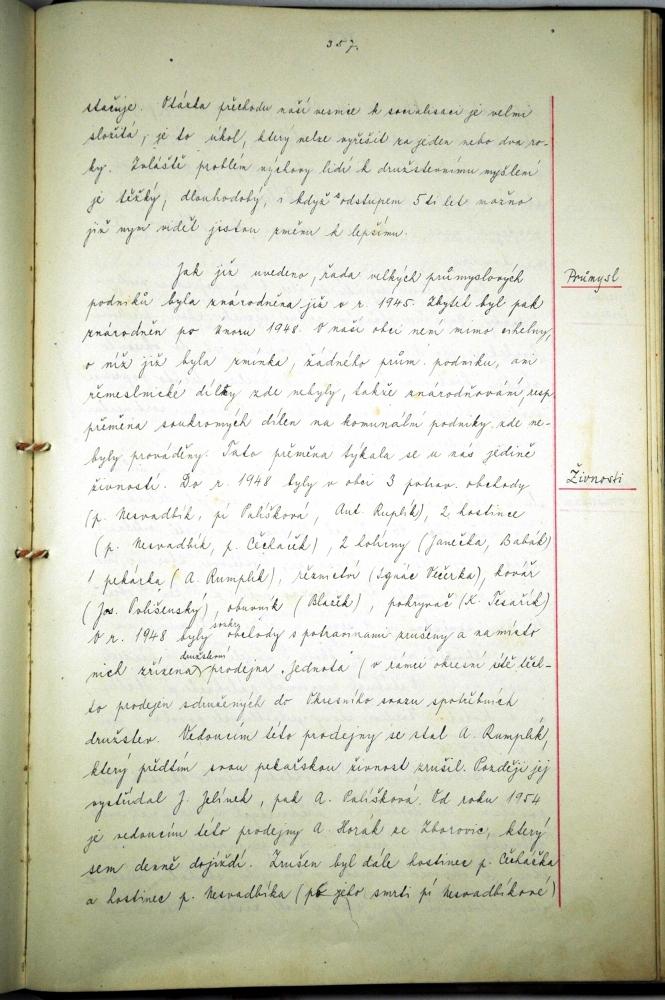 357.
stačuje. Otázka přechodu naší vesnice k socialisaci je velmi
složitá, je to úkol, který nelze vyřešit za jeden nebo dva ro-
ky. Zvláště problém výchovy lidí k družstevnímu myšlení
je těžký, dlouhodobý, i když s odstupem 5ti let možno
již nym vidět jistou změnu k lepšímu.
Jak již uvedeno, řada velkých průmyslových
Průmysl
podniků byla znárodněna již v r. 1945. Zbytek byl pak
znárodněn po únoru 1948. V naší obci není mimo cihelny,
o níž již byla zmínka, žádného prům. podniku, ani
řemeslnické dílny zde nebyly, takže znárodňování, resp.
přeměna soukromých dílen na komunální podniky zde ne-
byly prováděny. Tato přeměna týkala se u nás jedině
živností. Do r. 1948 byly v obci 3 potrav. obchody
Živnosti
(p. Nesvadbík, pí Pališková, Ant. Ruplík), 2 hostince
(p. Nesvadbík, p. Čecháček), 2 holírny (Janečka, Babák)
1 pekárka (A. Rumplík), řeznictví (Ignác Večerka), kovář
(Jos. Polišenský), obuvník (Blažek), pokryvač (K. Tesařík)
V r. 1948 byly soukr. obchody s potravinami zrušeny a na místo
nich zřízena družstevní prodejna "Jednota" (v rámci okresní sítě těch-
to prodejen sdružených do Okresního svazu spotřebních
družstev. Vedoucím této prodejny se stal A. Rumplík,
který předtím svou pekařskou živnost zrušil. Později jej
vystřídal J. Jelínek, pak A. Pališková. Od roku 1954
je vedoucím této prodejny A. Horák ze Zborovic, který
sem denně dojíždí. Zrušen byl dále hostinec p. Čecháčka
a hostinec p. Nesvadbíka (po jeho smrti pí Nesvadbíkové)